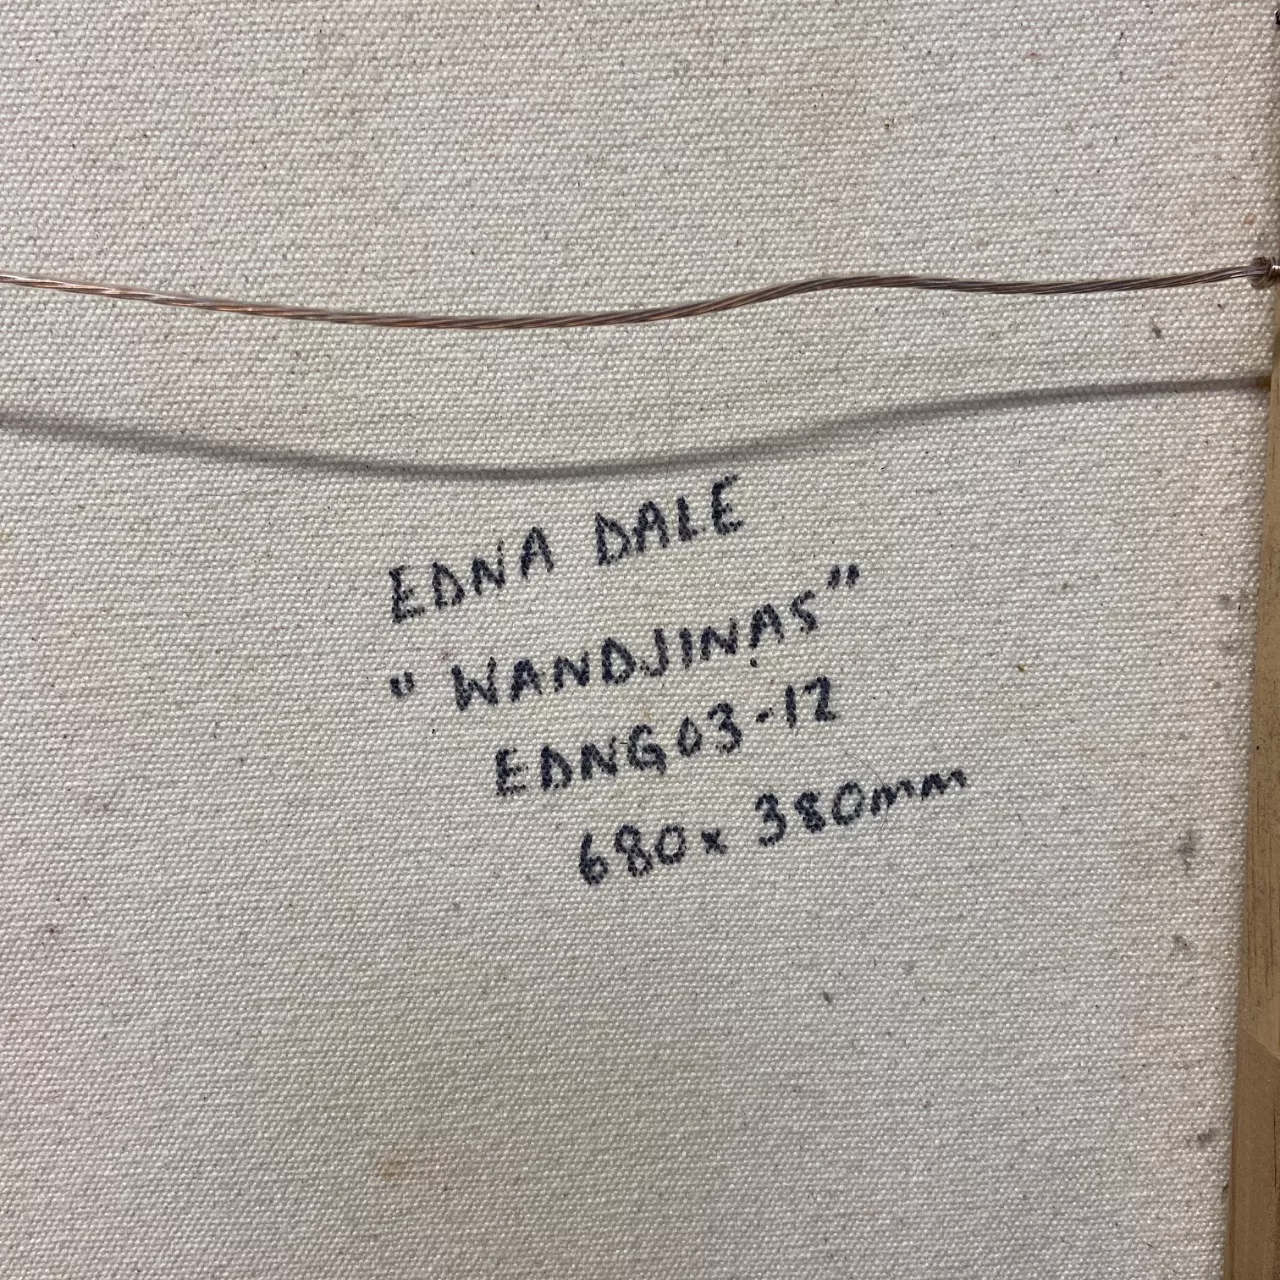 EDNA DALE
"WANDJINAS"
EDNG03-12
680x 380mm